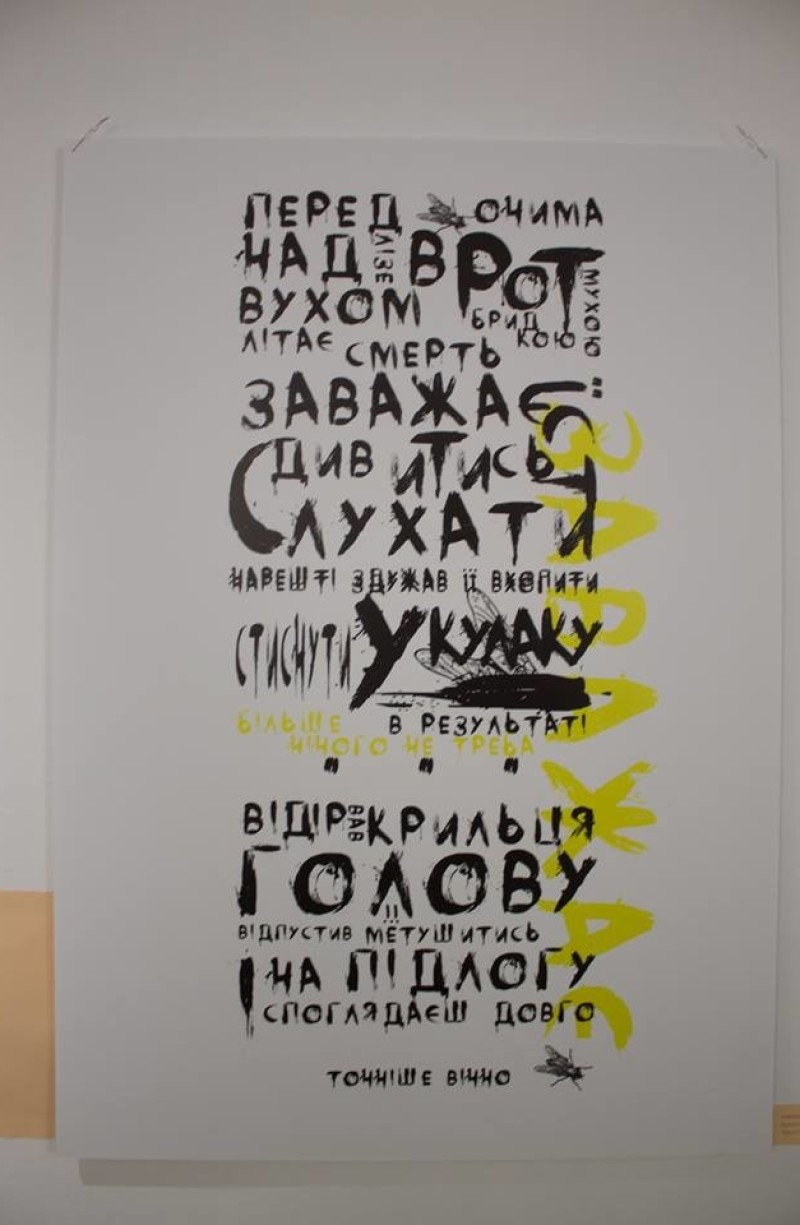 ПЕРЕД ОЧИМА
НАД ЛІЗЕ В РОТ
ВУХОМ БРИДКОЮ МУХОЮ
ЛІТАЄ СМЕРТЬ
ЗАВАЖАЄ ЇСТИ
ДИВИТИСЬ
СЛУХАТИ
ЗАВАЖАЄ
НАРЕШТІ ЗДУЖАВ ЇЇ ВХОПИТИ
СТИСНУТИ У КУЛАКУ
БІЛЬШЕ В РЕЗУЛЬТАТІ
НІЧОГО НЕ ТРЕБА
" " "
ВІДІРВАВ КРИЛЬЦЯ
ГОЛОВУ
ВІДПУСТИВ ЇЇ МЕТУШИТИСЬ
НА ПІДЛОГУ
І СПОГЛЯДАЄШ ДОВГО
ТОЧНІШЕ ВІЧНО